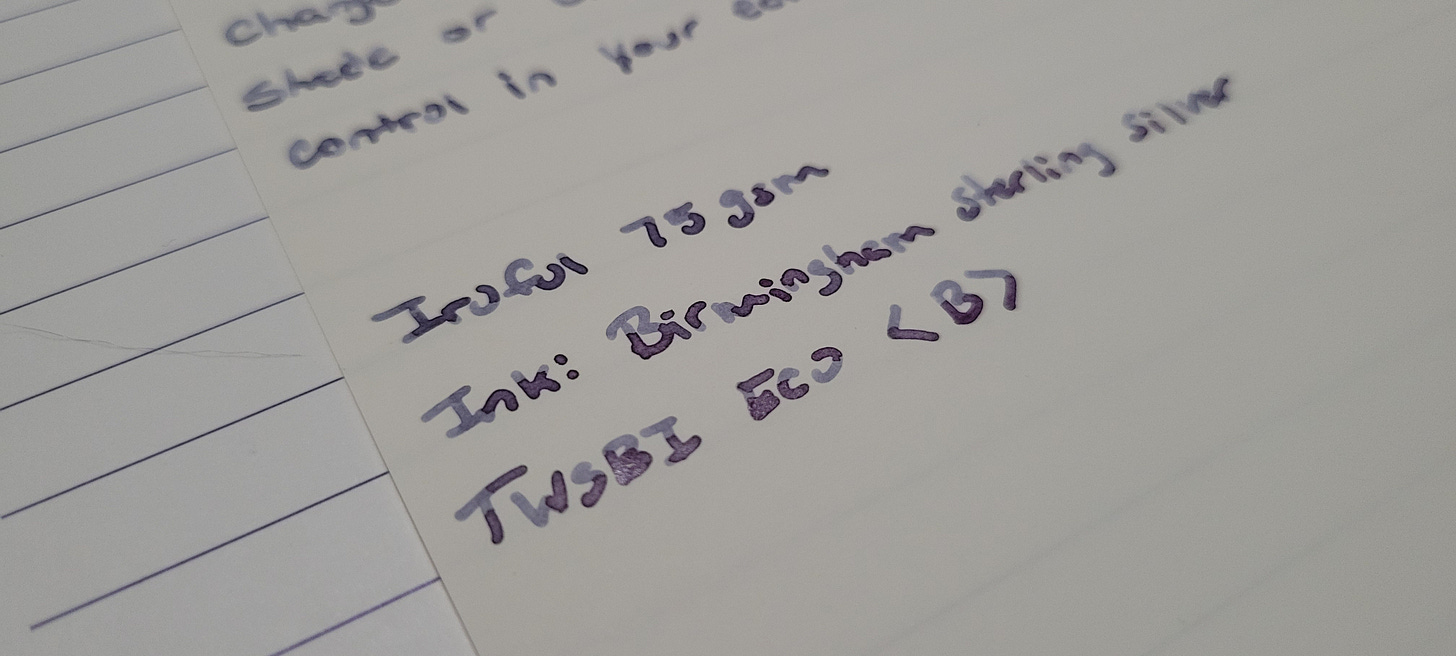 Shade or
control in your
Iroful 75 gsm
Ink: Birmingham sterling silver
TWSBI Eco <B>